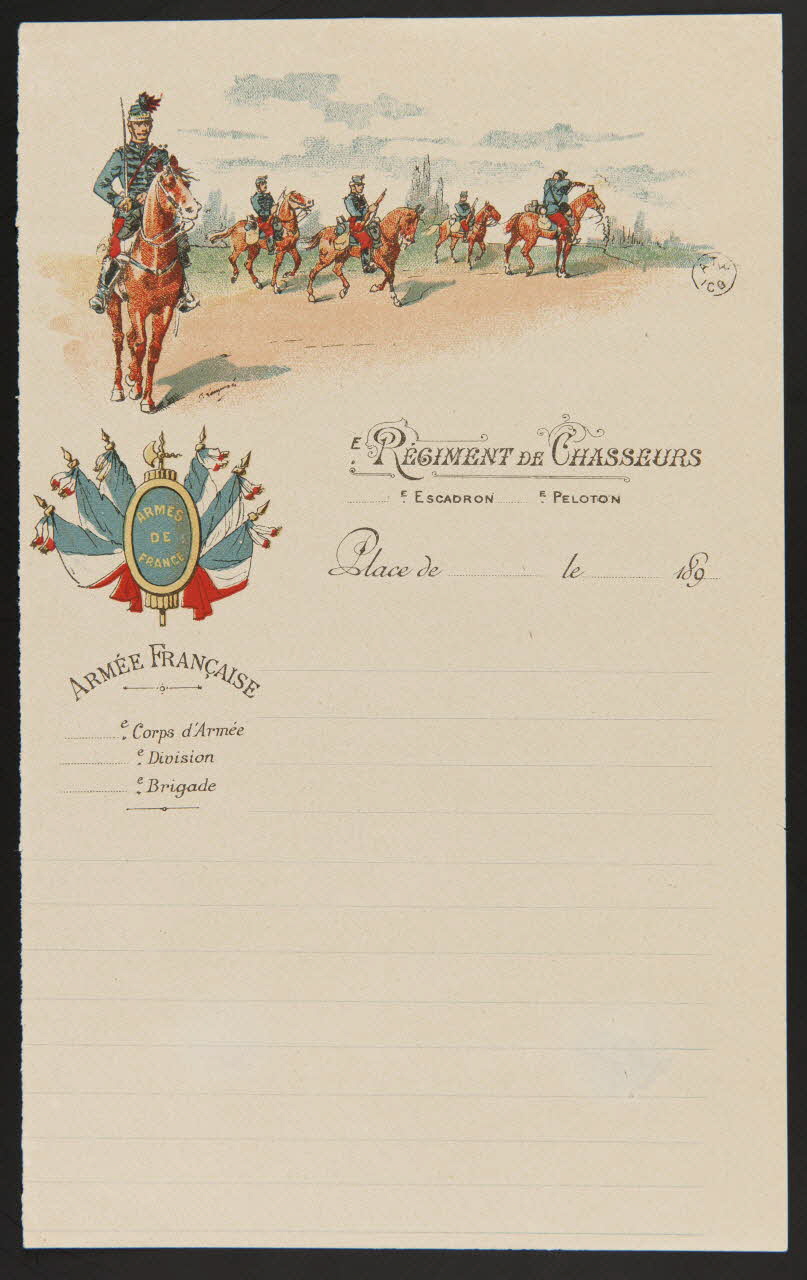 E. RÉGIMENT DE CHASSEURS
E. ESCADRON E. PELOTON
ARMES
DE
FRANCE
Place de le 189
ARMÉE FRANÇAISE
e. Corps d'Armée
e. Division
e. Brigade